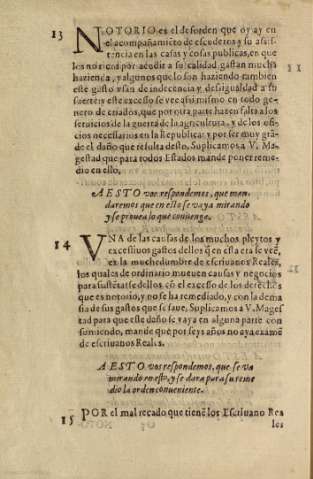 13 NOTORIO es el desorden que oy ay en
el acompañamiēto de escuderos y su asis-
tencia en las casas y cosas publicas, en que
los ricos por acudir a su calidad, gastan mucha
hazienda, y algunos que lo son haziendo tambien
este gasto usan de indecencia y desigualdad a su
suerte: y este excesso se vee asi mismo en todo ge-
nero de criados, que por otra parte hazen falta a los
seruicios de la guerra de la agricultura, y de los ofi-
cios necessarios en la Republica: y por ser muy grā
de el daño que resulta desto, Suplicamos a V. Ma-
gestad que para todos Estados mande poner reme-
dio en ello,
A ESTO vos respondemos, que man-
daremos que en esto se vaya mirando
y se prouea lo que conuenga.
14 VNA de las causas de los muchos pleytos y
excessiuos gastos dellos q̄ en esta era se veē,
es la muchedumbre de escriuanos Reales,
los quales de ordinario mueuen causas y negocios
para sustētarse dellos, cō el excesso de los derechos
que es notorio, y no se ha remediado, y con la dema
sia de sus gastos que se saue, Suplicamos a V. Mages
tad para que este daño se vaya en alguna parte con
sumiendo, mande que por seys años no aya examē
de escriuanos Reales.
A ESTO vos respondemos, que se va
mirando en esto, y se dara para su reme
dio la orden conueniente.
15 POR el mal recado que tienē los Escriuano Rea
les